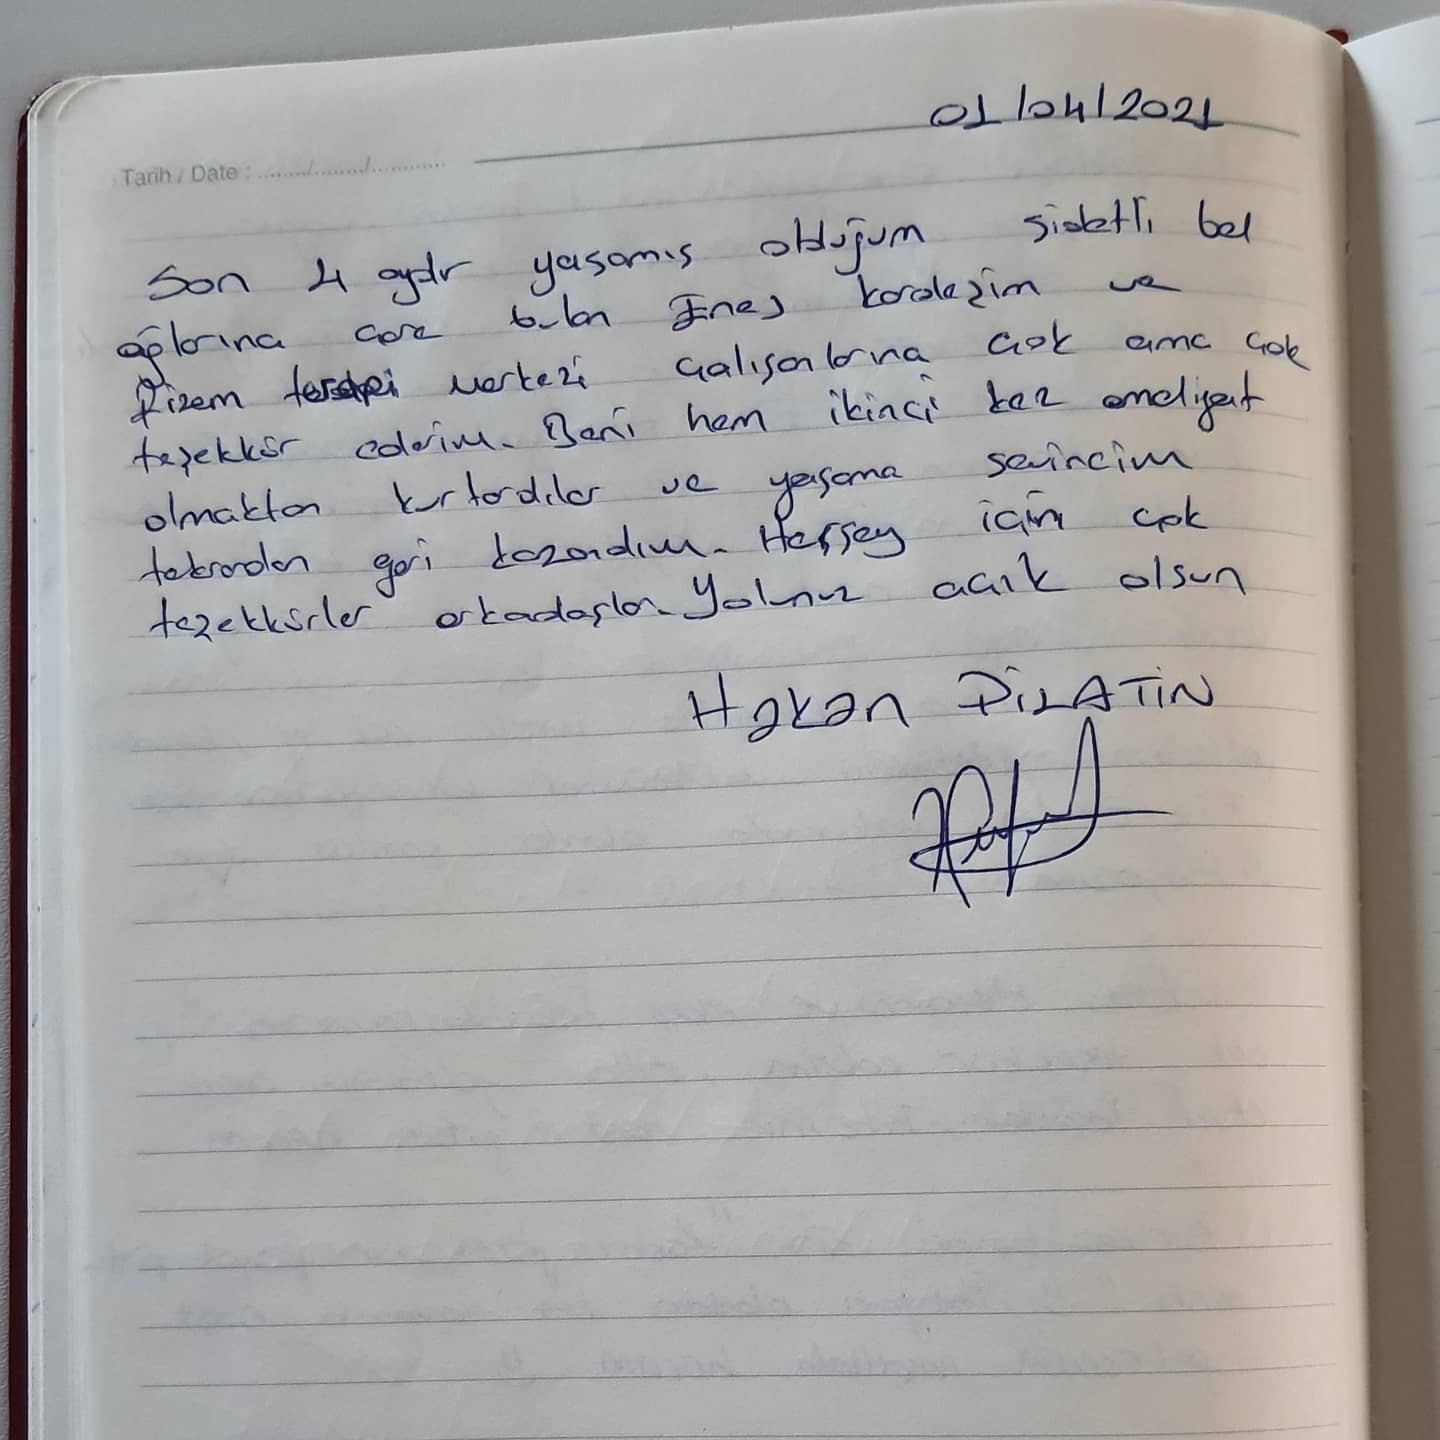 01/04/2021
Tarih / Date : ......../......../............
Son 4 aydır yaşamış olduğum şidetli bel
ağlarına çare bulan Enes kardeşim ve
fizem terapi merkezi çalışanlarına çok ama çok
teşekkür ederim. Beni hem ikinci kez ameliyat
olmaktan kurtardılar ve yaşama sevincim
tekrardan geri kazandım. Herşey için çok
teşekkürler arkadaşlar. Yolunuz açık olsun
Hakan DİLATİN